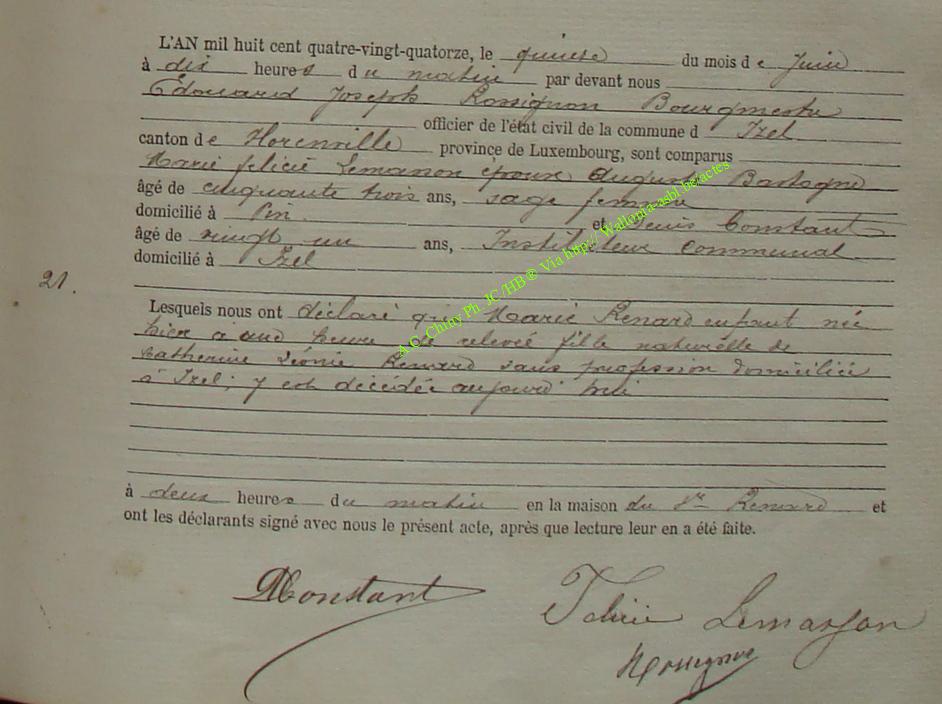 L'AN mil huit cent quatre-vingt-quatorze, le quinze du mois de Juin
à dix heures du matin par devant nous
Edouard Joseph Rossignon Bourgmestre
officier de l'état civil de la commune d Izel
canton de Florenville province de Luxembourg, sont comparus
Marie félicie Lemanon épouse Auguste Bastogne
âgé de cinquante trois ans, sage femme
domicilié à Pin et Denis Constant
âgé de vingt un ans, Instituteur communal
domicilié à Izel
21.
Lesquels nous ont déclaré que Marie Renard enfant née
hier à une heure de relevée fille naturelle de
Catherine Léonie Renard sans profession domiciliée
à Izel, y est décédée aujourd'hui
à deux heures du matin en la maison du Sr Renard et
ont les déclarants signé avec nous le présent acte, après que lecture leur en a été faite.
DConstant
Félicie
Rossignon
A.C. Chiny Ph. JC/HB® Via http://Wallonia-asbl.be/actes